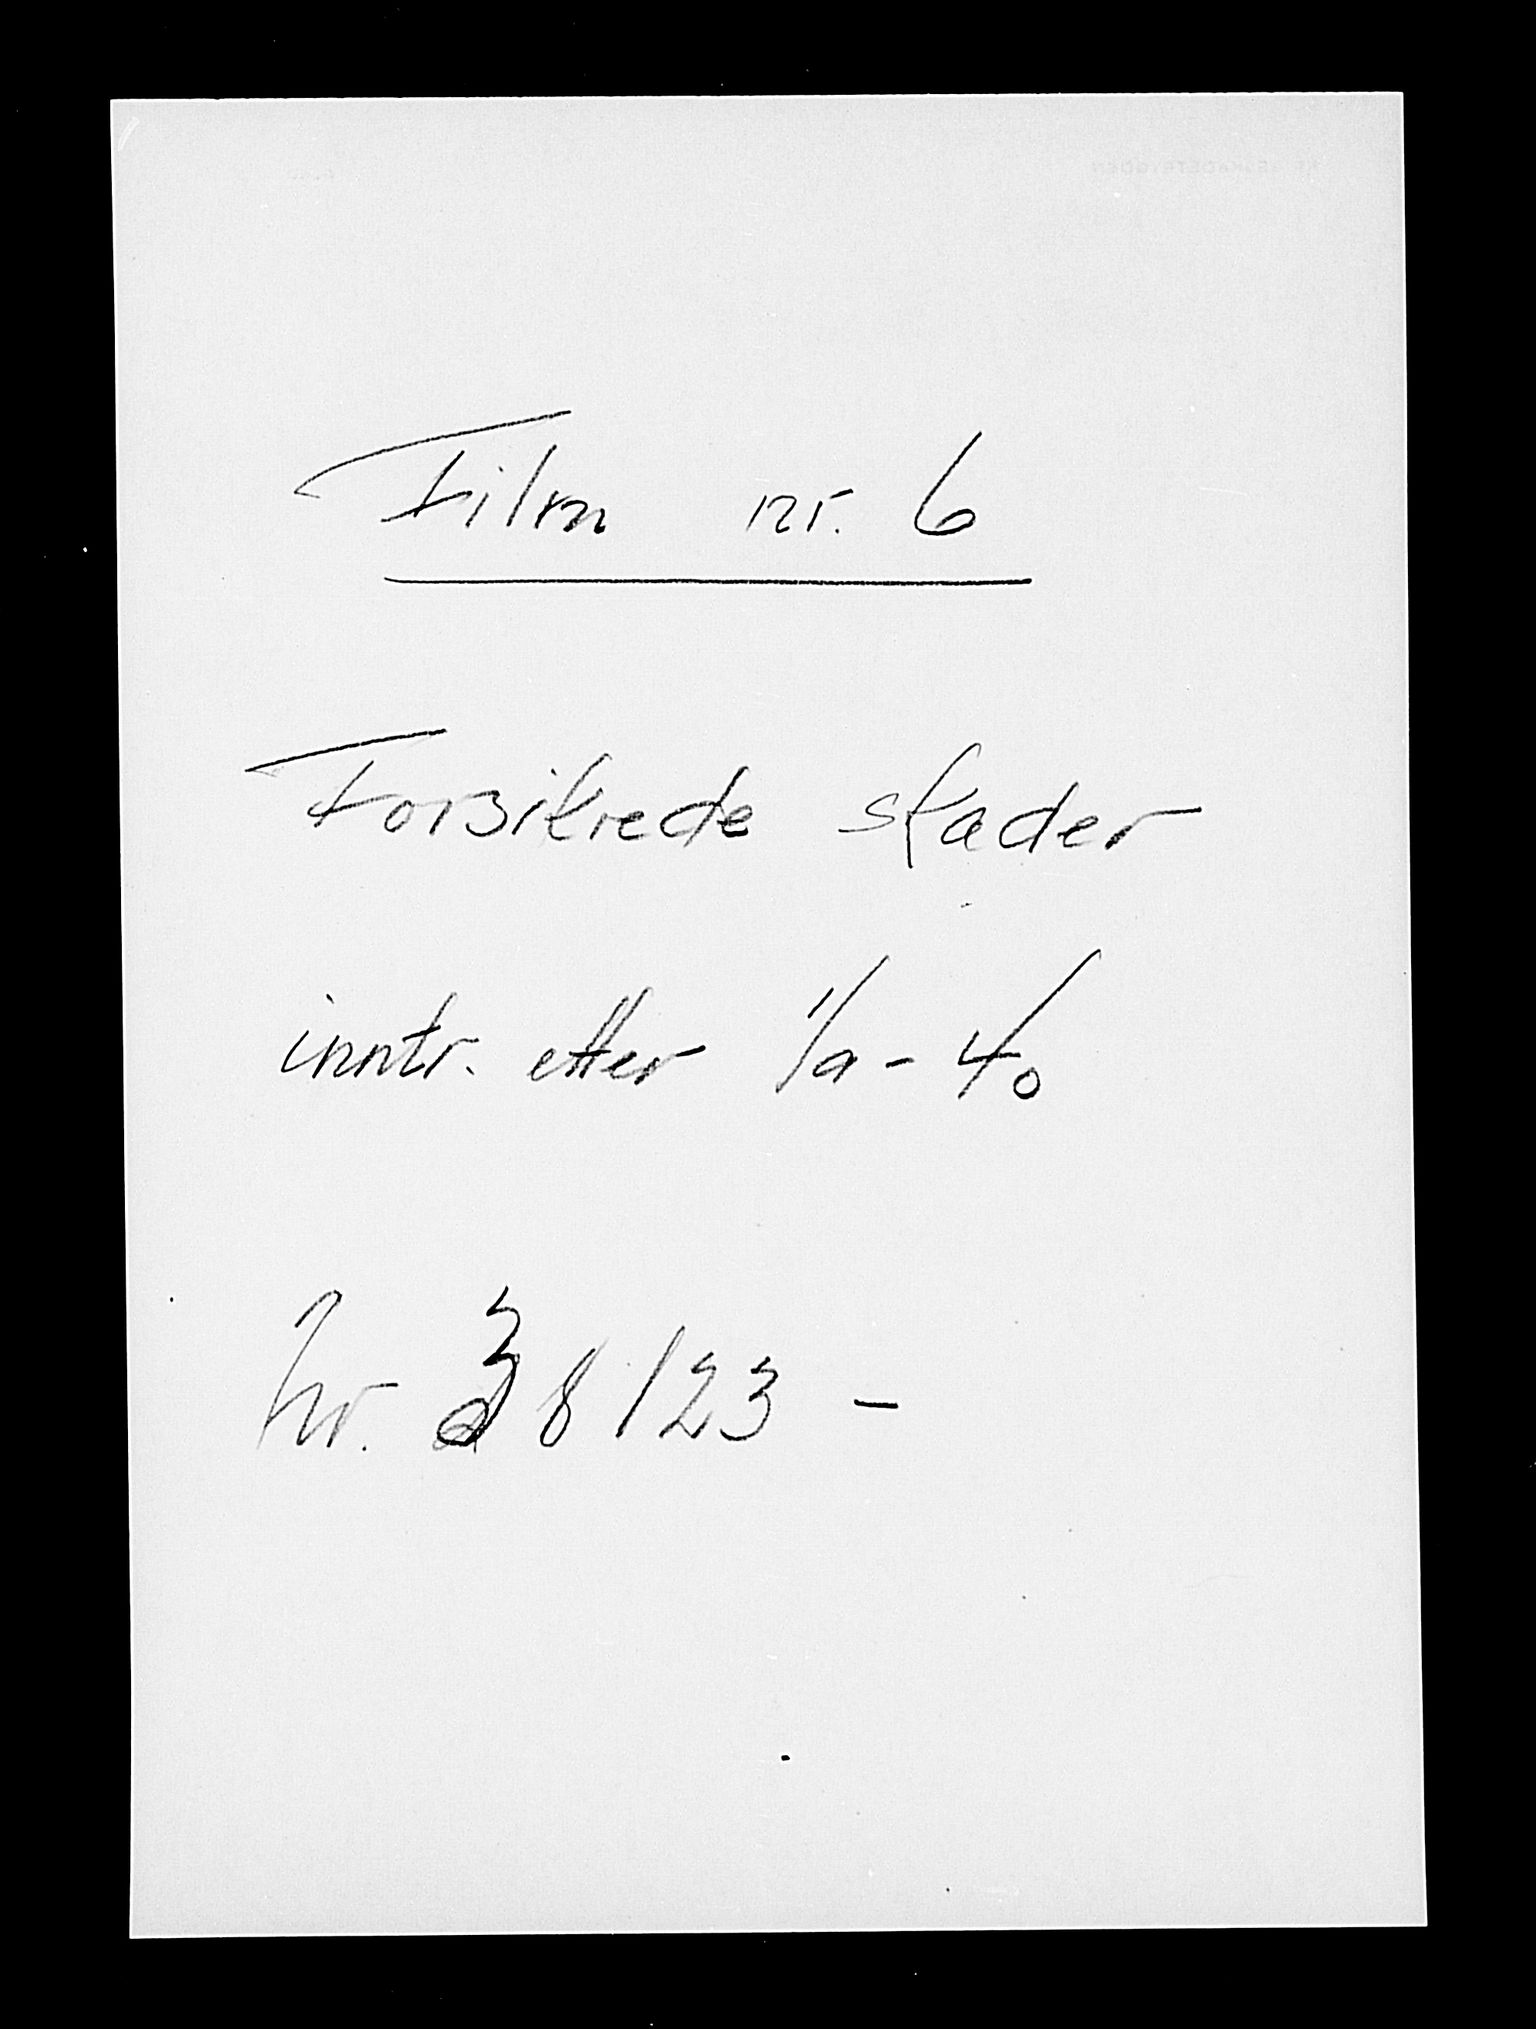 Film nr. 6
Forsikrede skader
inntr. etter 1/9 - 40
Nr. 38/23 -